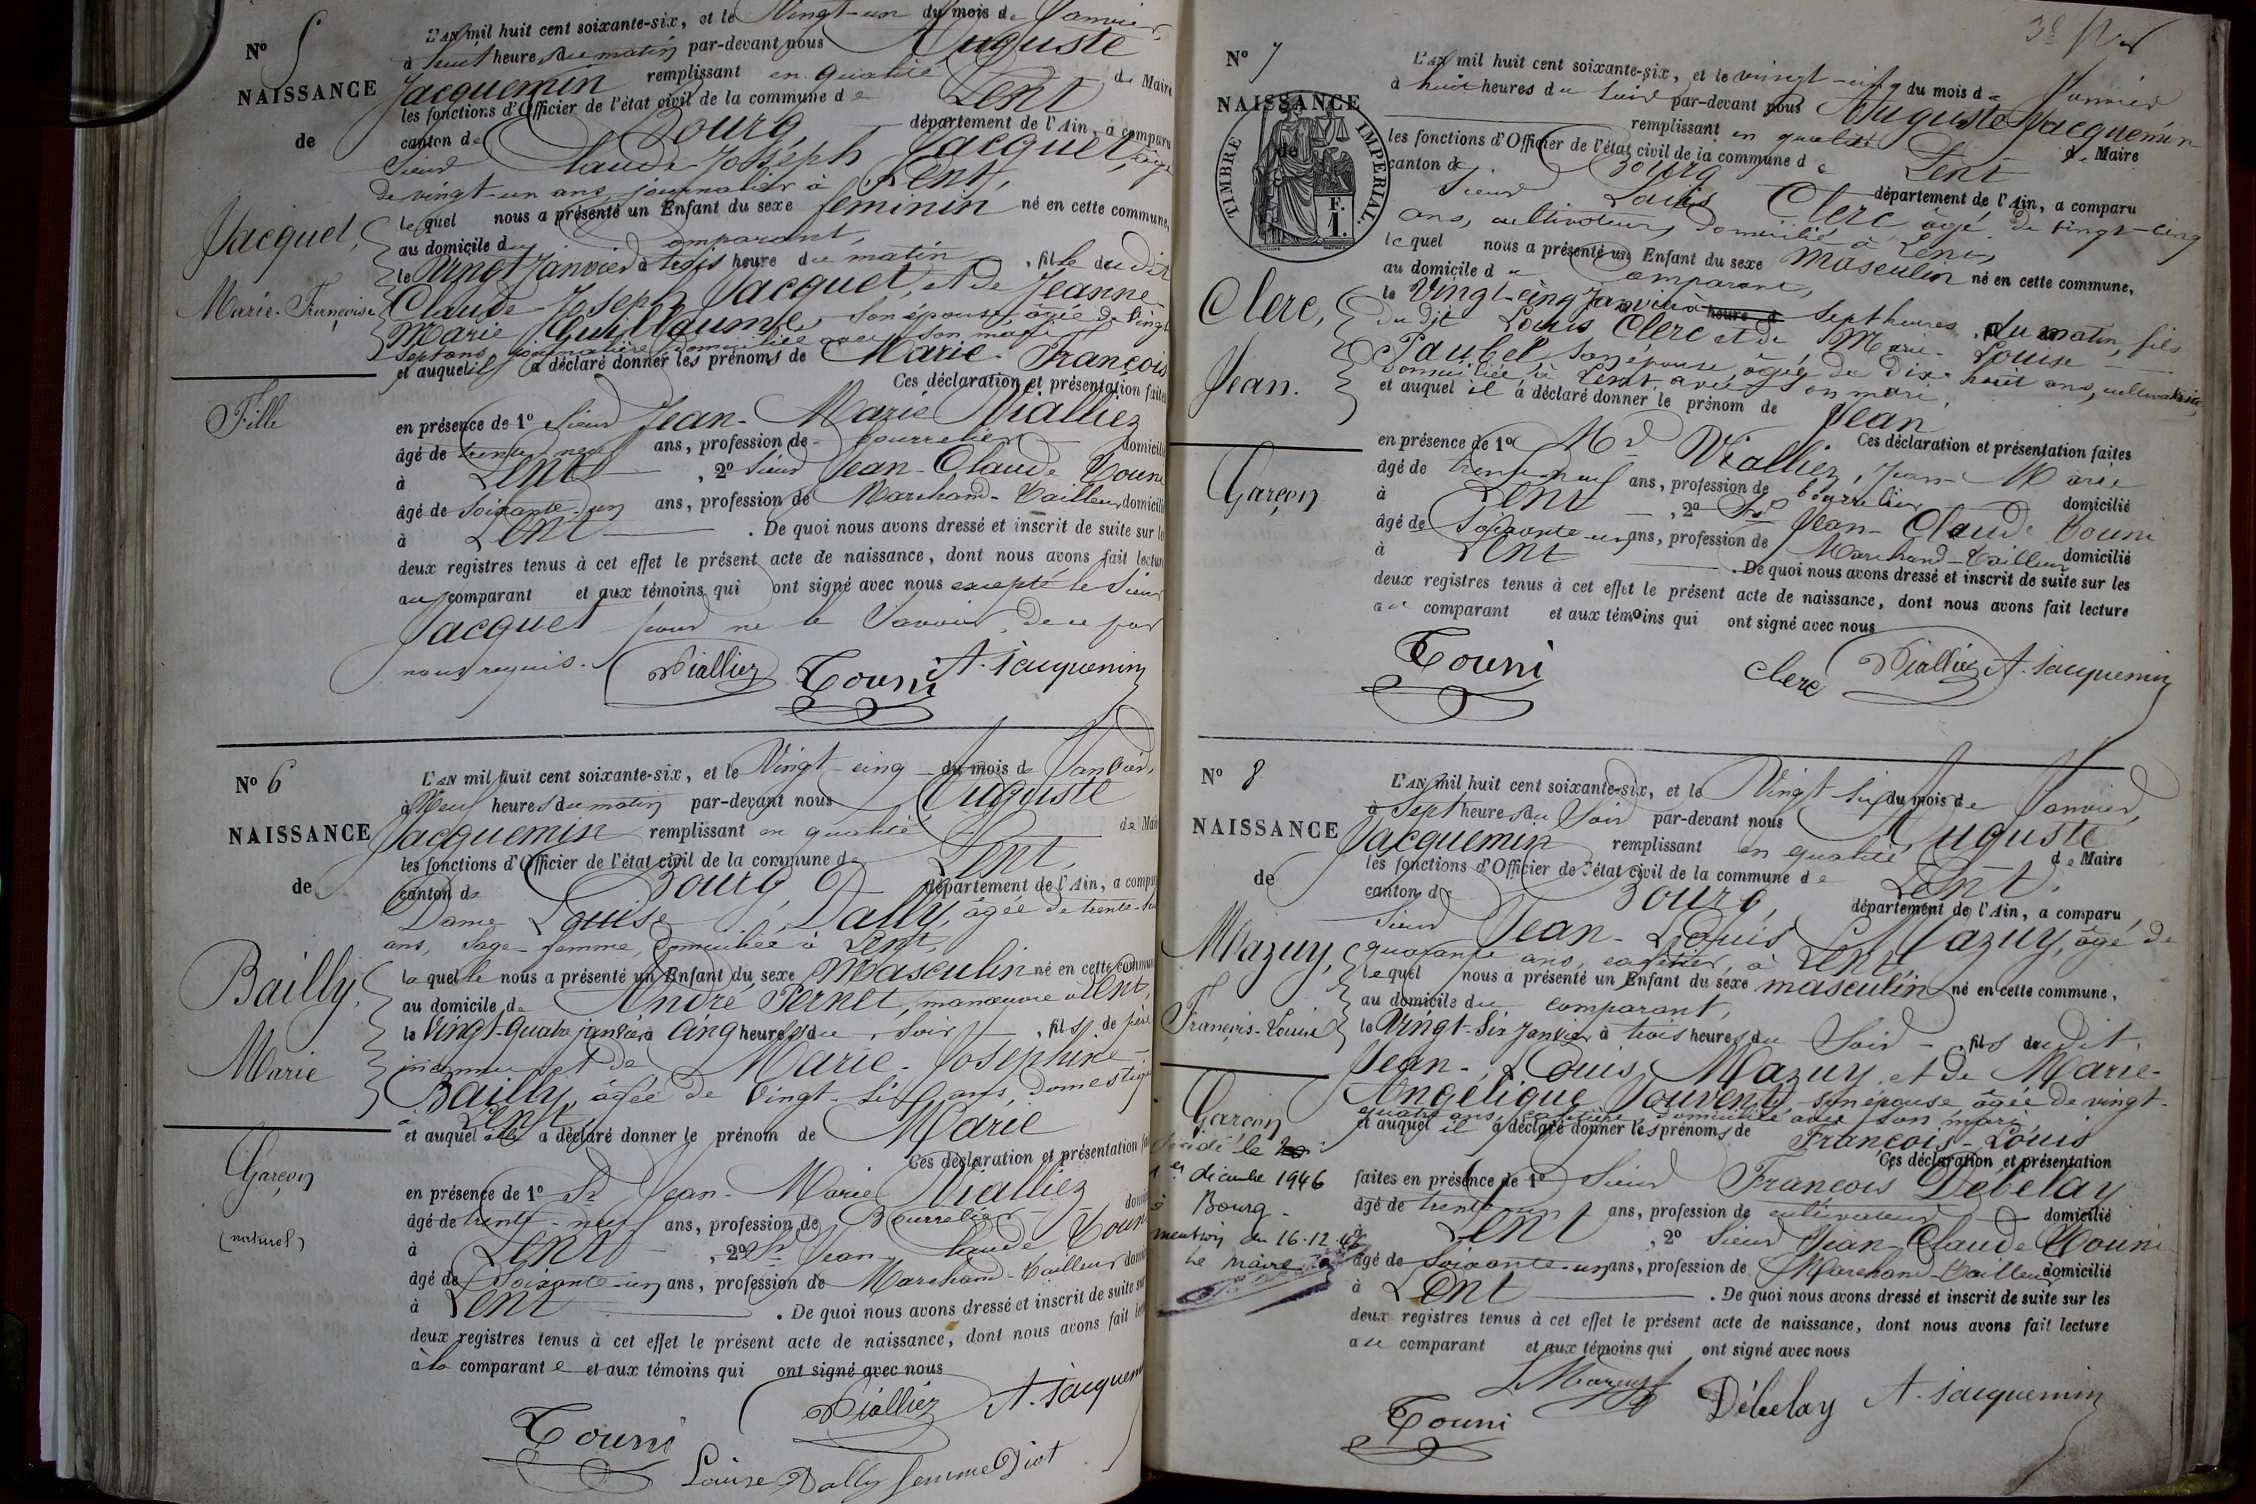 N° 5
NAISSANCE
de
Jacquet,
Marie-Françoise
Fille
L'AN mil huit cent soixante-six, et le Vingt-un du mois de Janvier,
à huit heures du matin par-devant nous Auguste
Jacquemin remplissant en qualité de Maire
les fonctions d'Officier de l'état civil de la commune de Lent
canton de Bourg, département de l'Ain, a comparu
Sieur Claude-Joseph Jacquet, âgé
de vingt-un ans, journalier à Lent,
lequel nous a présenté un Enfant du sexe féminin né en cette commune,
au domicile du Comparant,
le Vingt Janvier à trois heure du matin, fille dudit
Claude-Joseph Jacquet, et de Jeanne-
Marie Guillaume, son épouse, âgée de vingt
sept ans, journalière, domiciliée avec son mari
et auquel il a déclaré donner les prénoms de Marie-François
Ces déclaration et présentation faites
en présence de 1° Sieur Jean-Marie Vialliez
âgé de trente neuf ans, profession de bourrelier domicilié
à Lent, 2° Sieur Jean-Claude Touni
âgé de soixante-un ans, profession de Marchand-Tailleur domicilié
à Lent. De quoi nous avons dressé et inscrit de suite sur les
deux registres tenus à cet effet le présent acte de naissance, dont nous avons fait lecture
au comparant et aux témoins qui ont signé avec nous excepté le Sieur
Jacquet pour ne le Savoir, de ce par
nous requis.
Vialliez Touni A. Jacquemin
N° 6
NAISSANCE
de
Bailly,
Marie
Garçon
(naturel)
L'AN mil huit cent soixante-six, et le Vingt-cinq du mois de Janvier,
à Neuf heures du matin par-devant nous Auguste
Jacquemin remplissant en qualité de Maire
les fonctions d'Officier de l'état civil de la commune de Lent,
canton de Bourg, département de l'Ain, a comparu
Dame Louise Dally, âgée de trente-
ans, Sage-femme, domiciliée à Lent,
laquelle nous a présenté un Enfant du sexe Masculin né en cette commune
au domicile de André Pernet, manœuvre à Lent,
le Vingt-quatre janvier à cinq heures du soir, fils de père
inconnu et de Marie-Joséphine
Bailly, âgée de vingt-six ans, domestique
à Lent
et auquel elle a déclaré donner le prénom de Marie
Ces déclaration et présentation
en présence de 1° Sr Jean-Marie Vialliez
âgé de trente-neuf ans, profession de Bourrelier
à Lent, 2° Sr Jean-Claude Touni
âgé de Soixante-un ans, profession de Marchand-Tailleur
à Lent. De quoi nous avons dressé et inscrit de suite sur
deux registres tenus à cet effet le présent acte de naissance, dont nous avons fait
à la comparante et aux témoins qui ont signé avec nous
Vialliez A. Jacquemin
Touni
Louise Dally femme Diot
N° 7
NAISSANCE
de
TIMBRE IMPERIAL.
F. 1.
Clerc,
Jean.
Garçon
L'AN mil huit cent soixante-six, et le vingt-cinq du mois de Janvier
à huit heures du soir par-devant nous Auguste Jacquemin
remplissant en qualité de Maire
les fonctions d'Officier de l'état civil de la commune de Lent
canton de Bourg département de l'Ain, a comparu
Sieur Louis Clerc âgé de vingt-cinq
ans, cultivateur, domicilié à Lent,
lequel nous a présenté un Enfant du sexe Masculin né en cette commune,
au domicile du Comparant,
le Vingt-cinq Janvier à heure d Sept heures du matin, fils
du dit Louis Clerc et de Marie-Louise
Paubel, son épouse, âgée de dix-huit ans, cultivatrice,
domiciliée à Lent avec son mari,
et auquel il a déclaré donner le prénom de Jean
Ces déclaration et présentation faites
en présence de 1° Mr Vialliez, Jean-Marie
âgé de trente-neuf ans, profession de bourrelier domicilié
à Lent, 2° Sr Jean-Claude Touni
âgé de Soixante-un ans, profession de Marchand-Tailleur domicilié
à Lent. De quoi nous avons dressé et inscrit de suite sur les
deux registres tenus à cet effet le présent acte de naissance, dont nous avons fait lecture
au comparant et aux témoins qui ont signé avec nous
Touni Clerc Vialliez A. Jacquemin
N° 8
NAISSANCE
de
Mazuy,
François-Louis
Garçon
décédé le
1er décembre 1946
à Bourg-
mention du 16.12.46
Le Maire
L'AN mil huit cent soixante-six, et le Vingt-six du mois de Janvier,
à Sept heures du Soir par-devant nous Auguste
Jacquemin remplissant en qualité de Maire
les fonctions d'Officier de l'état civil de la commune de Lent.
canton de Bourg, département de l'Ain, a comparu
Sieur Jean-Louis Mazuy, âgé de
quarante ans, cafetier, à Lent
lequel nous a présenté un Enfant du sexe masculin né en cette commune,
au domicile du comparant,
le Vingt-Six Janvier à trois heures du Soir, fils dudit
Jean-Louis Mazuy et de Marie-
Angélique Jouvent, son épouse âgée de vingt-
quatre ans, cafetière, domiciliée avec son mari
et auquel il a déclaré donner les prénoms de François-Louis
Ces déclaration et présentation
faites en présence de 1° Sieur François Debelay
âgé de trente-un ans, profession de cultivateur domicilié
à Lent, 2° Sieur Jean-Claude Touni
âgé de Soixante-un ans, profession de Marchand-Tailleur domicilié
à Lent. De quoi nous avons dressé et inscrit de suite sur les
deux registres tenus à cet effet le présent acte de naissance, dont nous avons fait lecture
au comparant et aux témoins qui ont signé avec nous
L Mazuy
Touni Débelay A. Jacquemin